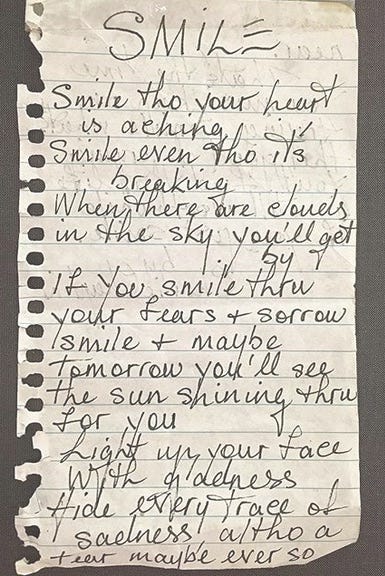 SMILE
Smile tho your heart
is aching
Smile even tho it's
breaking
When there are clouds
in the sky you'll get
by
If you smile thru
your fears + sorrow
smile + maybe
tomorrow you'll see
the sun shining thru
for you
Light up your face
With gladness
Hide every trace of
sadness, altho a
tear maybe ever so